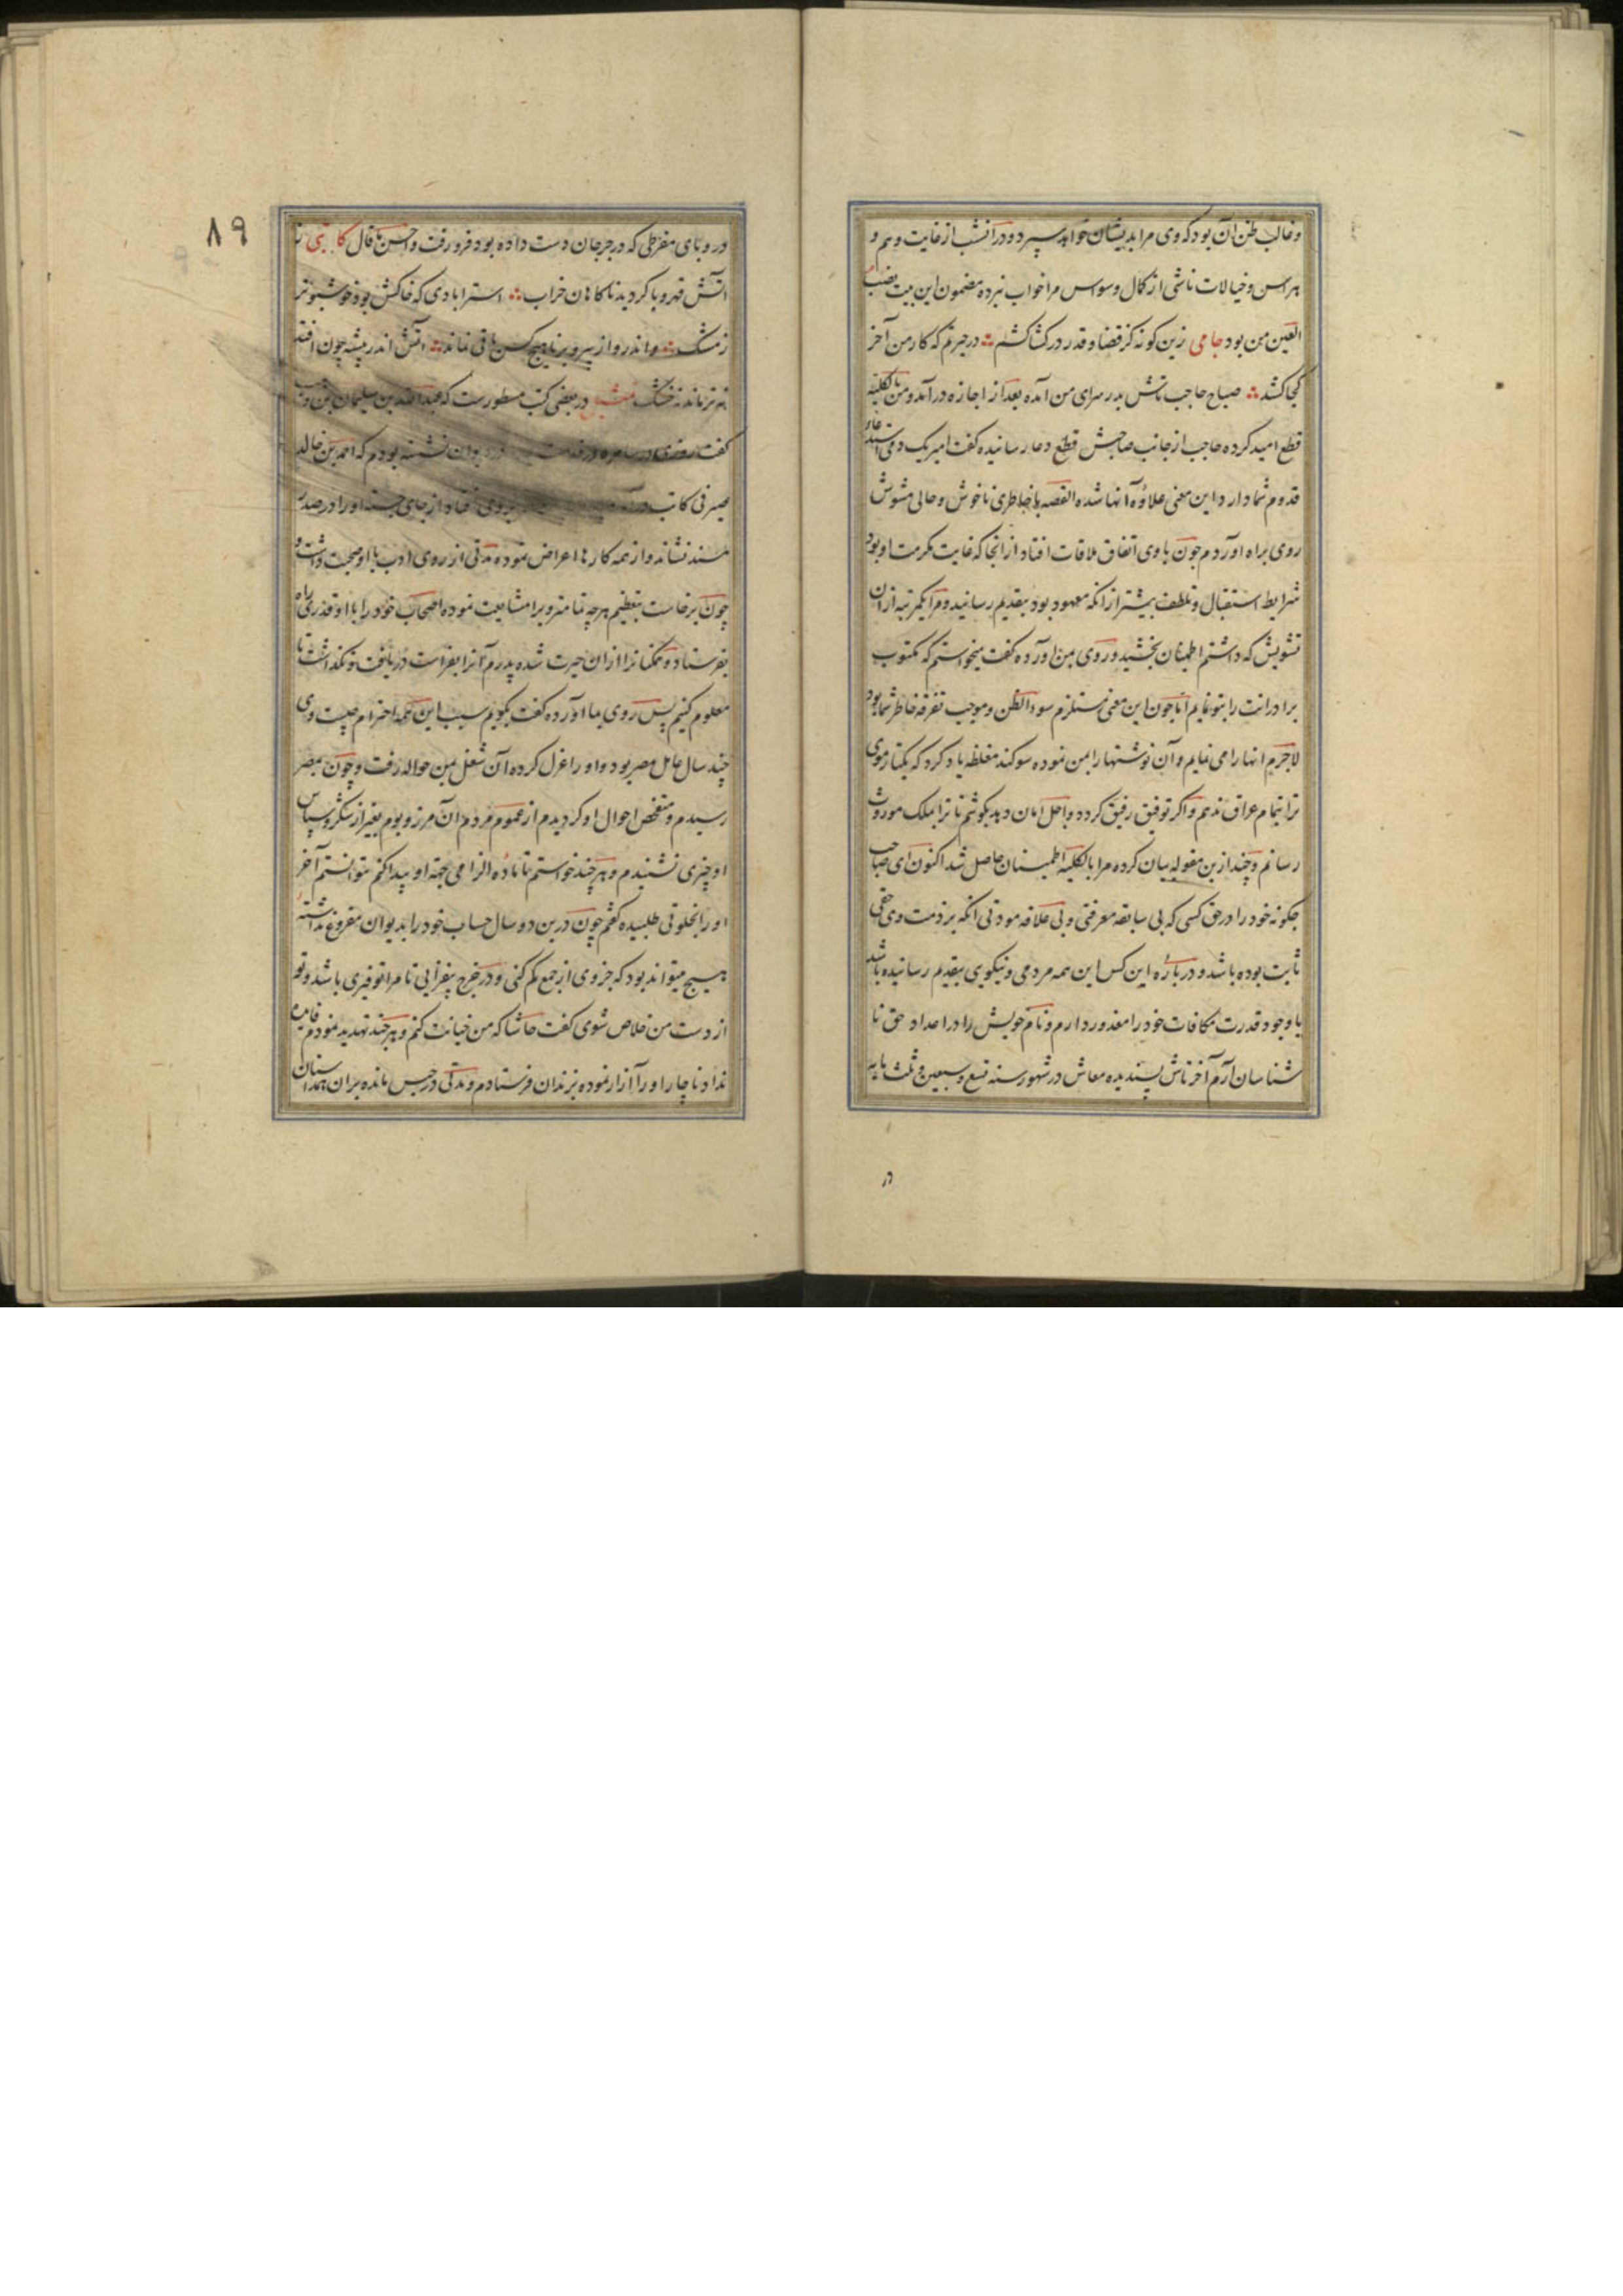 و غالب ظن آن بود که وی مرا بدیشان خواهد سپرد و در آنشب از غایت وهم و
هراس و خیالات ناشی از کمال وسواس مرا خواب نبرده مضمون این بیت نصب
العین من بود جامی زین گونه کز قضا و قدر در کشاکشم ∴ در حیرتم که کار من آخر
کجا کشد ∴ صباح حاجب تاش بدر سرای من آمده بعد از اجازه درآمد و من بالکلیه
قطع امید کرده حاجب از جانب صاحبش قطع دعا رسانیده کفت امیر یک دم استدعاء
قدوم شما دارد این معنی علاوه آنها شده القصه با خاطری ناخوش و حالی مشوش
روی براه آوردم چون با وی اتفاق ملاقات افتاد از آنجا که غایت مکرمت او بود
شرایط استقبال و تلطف بیشتر از آنکه معهود بود بتقدیم رسانید و مرا یکمرتبه از آن
تشویش که داشتم اطمینان بخشید و روی بمن آورده کفت میخواستم که مکتوب
برادرانت را بتو نمایم اما چون این معنی مستلزم سوء الظن و موجب تفرقه خاطر شما بود
لاجرم آنها را می نمایم و آن نوشتها را بمن نموده سوکند مغلظه یاد کرد که یکتار موی
ترا بتمام عراق ندهم و اکر توفیق رفیق کردد و اجل امان دهد بکوشم تا ترا بملک موروث
رسانم و چند ازین مقوله بیان کرده مرا بالکلیه اطمینان حاصل شد اکنون ای صاحب
چکونه خود را در حق کسی که بی سابقه معرفتی و بی علاقه مودتی آنکه بر ذمت وی حقی
ثابت بوده باشد و درباره این کس این همه مردمی و نیکویی بتقدیم رسانیده باشد
با وجود قدرت مکافات خود را معذور دارم و نام خویش را در اعداد حق نا
شناسان آرم آخر تاش پسندیده معاش در شهور سنه تسع و سبعین و ثلث مایه
در
۸۹
در وبای مفرطی که در جرجان دست داده بود فرو رفت و احسن ما قال کاتبی ز
آتش قهر وبا کردید ناکاهان خراب ∴ استرابادی که خاکش بود خوشبوتر
ز مشک ∴ و اندرو از پیر و برنا هیچ کس باقی نماند ∴ آتش اندر بیشه چون افتد
نه تر ماند نه خشک در بعضی کتب مسطورست که عبدالله بن سلیمان بن وهب
کفت روزی در سامره در خدمت دیوان نشسته بودم که احمد بن خالد
صیرفی کاتب بروی افتاد از جای جسته او را در صدر
مسند نشاند و از همه کارها اعراض نموده مدتی از روی ادب با او صحبت داشت و
چون برخاست بتعظیم هرچه تمامتر ویرا مشایعت نموده اصحاب خود را با او قدری راه
بفرستاد و همکنانرا از آن حیرت شده پدرم آنرا بفراست دریافت و نکذاشت تا
معلوم کنیم پس روی بما آورده کفت بکویم سبب این همه احترام چیست وی
چند سال عامل مصر بود و او را عزل کرده آن شغل بمن حواله رفت و چون بمصر
رسیدم و متفحص احوال او کردیدم از عموم مردم آن مرز و بوم بغیر از شکر و سپاس
او چیزی نشنیدم و هرچند خواستم تا ماده الزامی جهة او پیدا کنم نتوانستم آخر
او را بخلوتی طلبیده کفتم چون درین دو سال حساب خود را بدیوان مفروغ نداشته
هیچ میتواند بود که جزوی از جمع کم کنی و در خرج بیفزایی تا مرا توفیری باشد و تو
از دست من خلاص شوی کفت حاشا که من خیانت کنم و هرچند تهدید نمودم فایده
نداد ناچار او را آزار نموده بزندان فرستادم و مدتی در حبس مانده بران همداستان